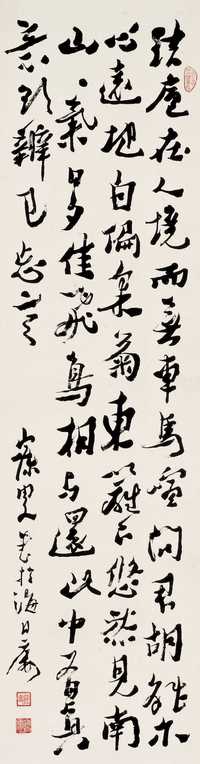 結廬在人境而無車馬喧問君胡能尔
心遠地自偏采菊東籬下悠然見南
山、氣日夕佳飛鳥相与還此中有真
意欲辯已忘言
寐叟書於海日廔